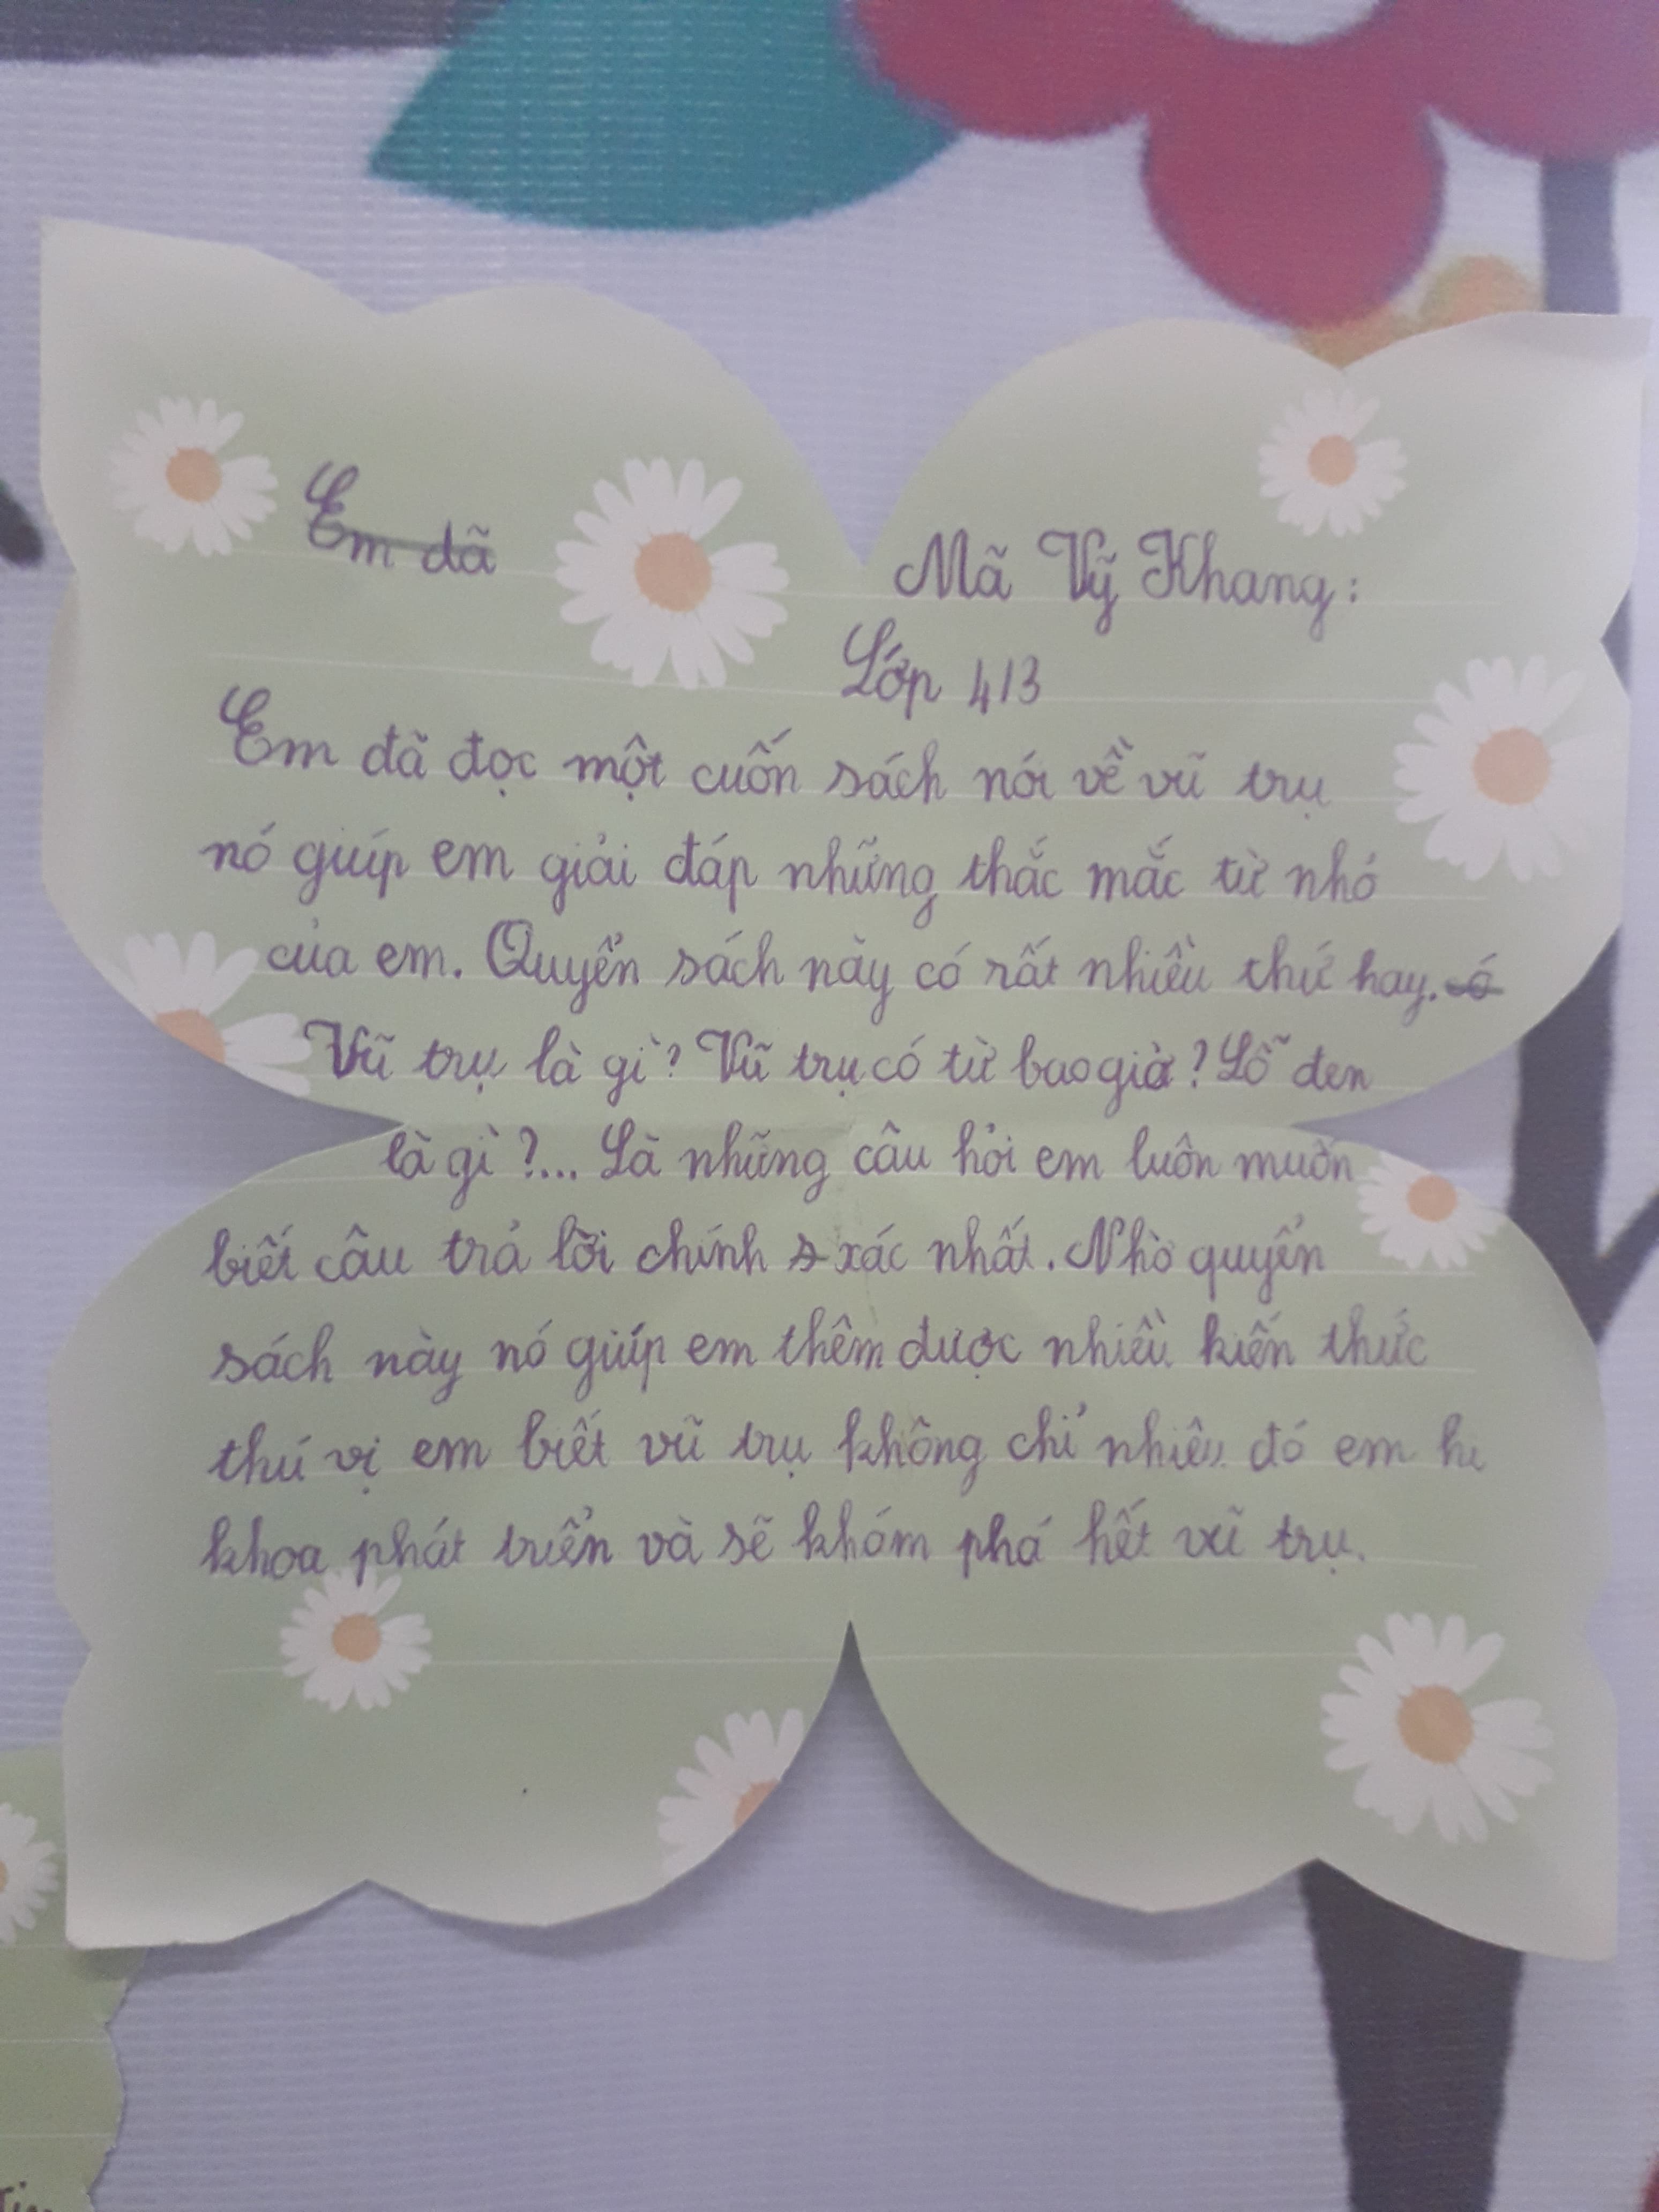 Em đã
Mã Vỹ Khang:
Lớp 4/3
Em đã đọc một cuốn sách nói về vũ trụ
nó giúp em giải đáp những thắc mắc từ nhỏ
của em. Quyển sách này có rất nhiều thứ hay. có
Vũ trụ là gì? Vũ trụ có từ bao giờ? Lỗ đen
là gì?... Là những câu hỏi em luôn muốn
biết câu trả lời chính s xác nhất. Nhờ quyển
sách này nó giúp em thêm được nhiều kiến thức
thú vị em biết vũ trụ không chỉ nhiêu đó em
khoa phát triển và sẽ khám phá hết vũ trụ.